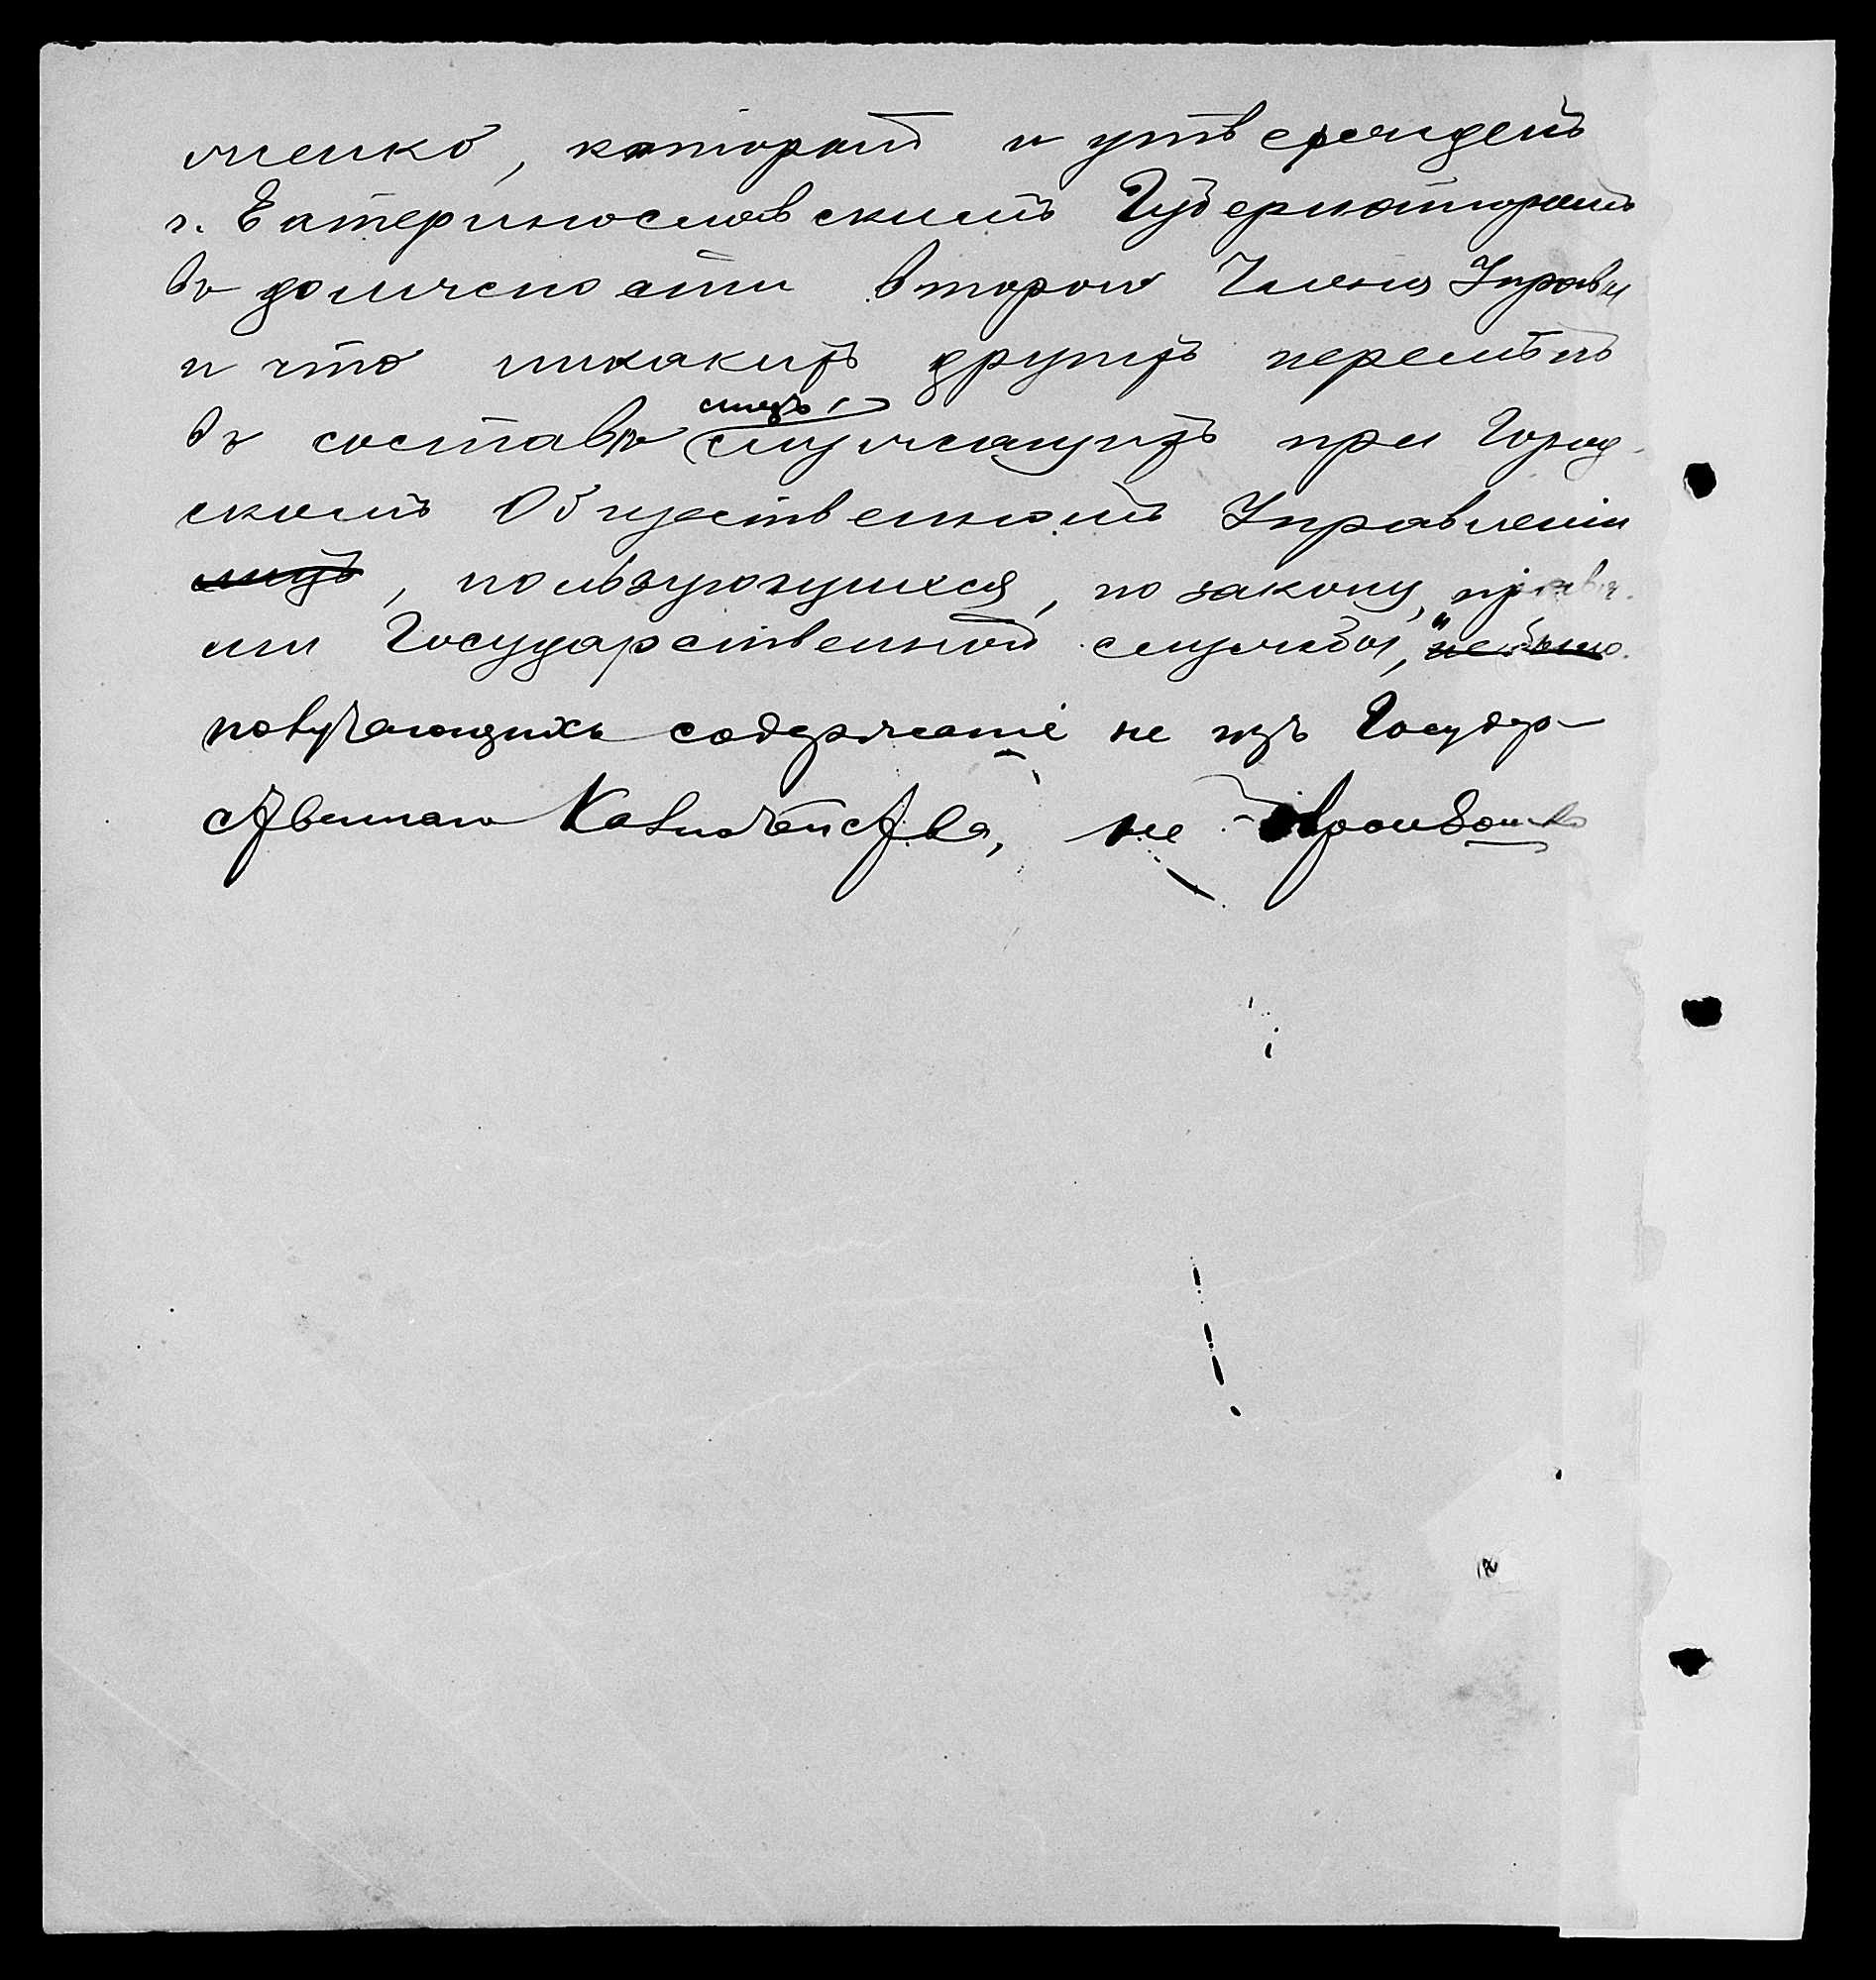 менко, который и утвержденъ
г. Екатеринославскимъ Губернаторомъ
въ должности второго Члена Управы
и что никакихъ другихъ перемѣнъ
лицъ,
въ составѣ служащихъ при Город-
скомъ Общественномъ Управленіи
лицъ, пользующихся, по закону, права-
ми Государственной службы, и не было
получающихъ содержаніе не изъ Государ-
ственнаго Казначейства, не произошло